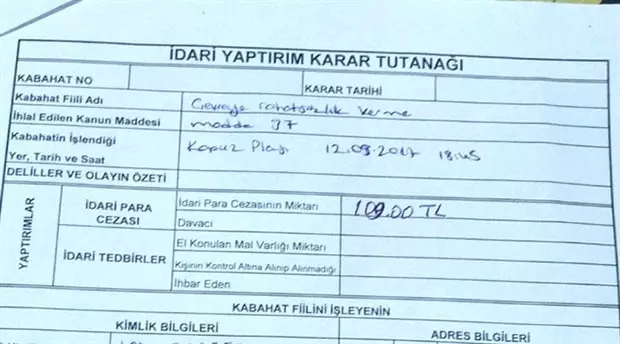 İDARİ YAPTIRIM KARAR TUTANAĞI
KABAHAT NO KARAR TARİHİ
Kabahat Fiili Adı Çevreye rahatsızlık verme
İhlal Edilen Kanun Maddesi madde 37
Kabahatin İşlendiği
Yer, Tarih ve Saat Kapuz Plajı 12.09.2017 18:45
DELİLLER VE OLAYIN ÖZETİ
YAPTIRIMLAR
İDARİ PARA CEZASI
İdari Para Cezasının Miktarı 109.00 TL
Davacı
İDARİ TEDBİRLER
El Konulan Mal Varlığı Miktarı
Kişinin Kontrol Altına Alınıp Alınmadığı
İhbar Eden
KABAHAT FİİLİNİ İŞLEYENİN
KİMLİK BİLGİLERİ ADRES BİLGİLERİ